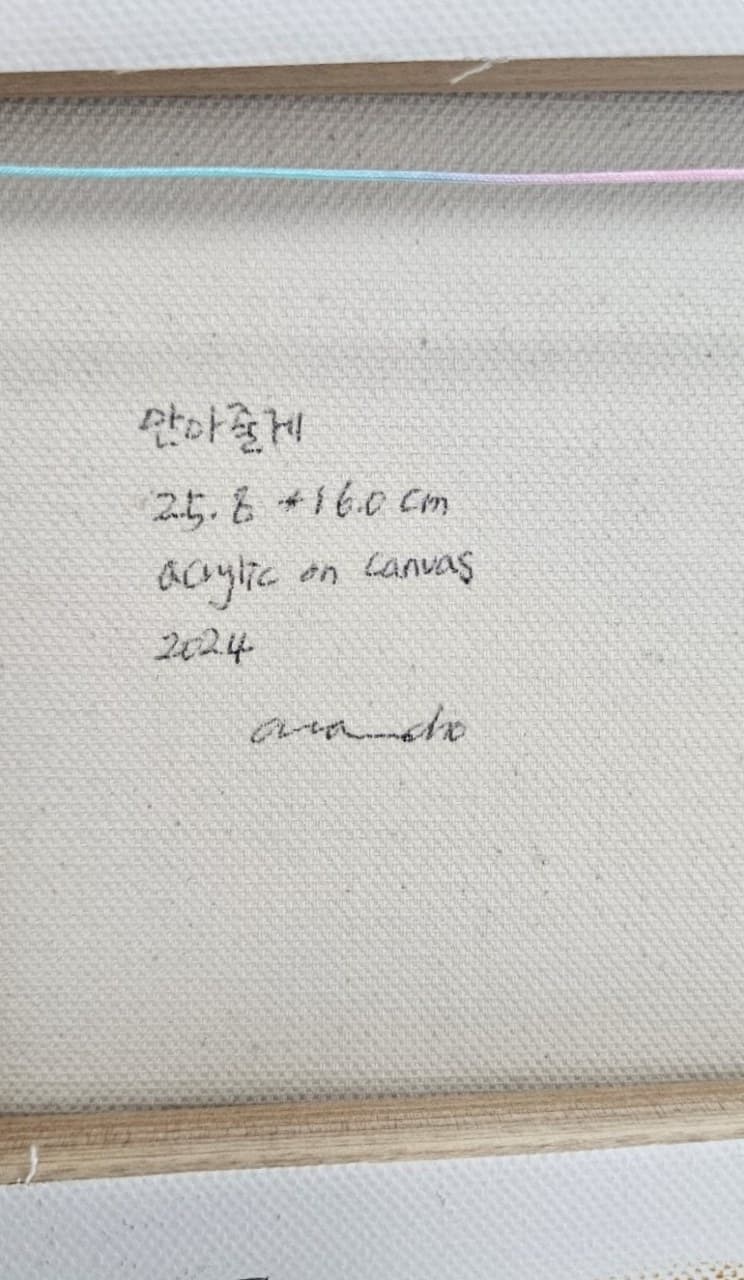 안아줄게
25.8 *16.0 cm
acrylic on canvas
2024
ara cho